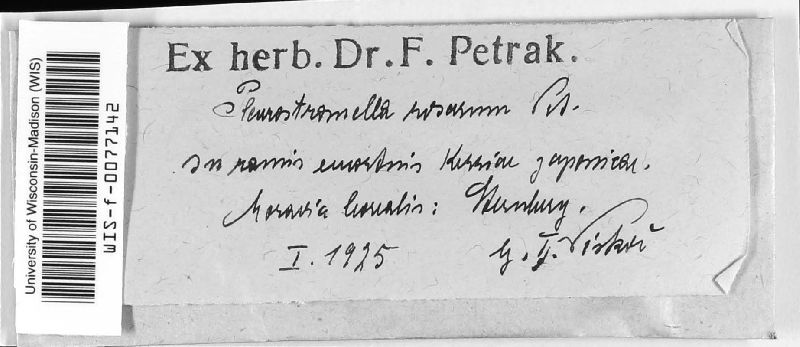 University of Wisconsin-Madison (WIS)
WIS-f-0077142
Ex herb. Dr. F. Petrak.
Pleurostromella rosarum Pet.
In ramis emortuis Kerriae japonicae.
Moravia borealis: Sternberg.
I. 1925 lg. J. Piskoř